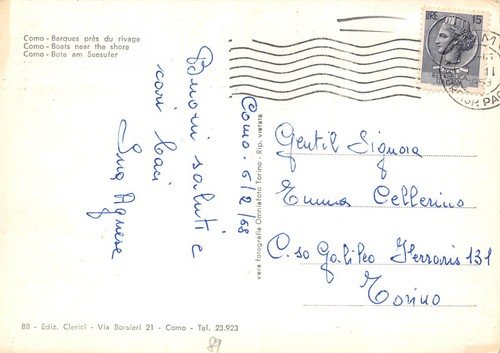 Como - Barques près du rivage
Como - Boats near the shore
Como - Bote am Seesufer
Buoni saluti e
cari baci
Como. 6/2/68
vera fotografia Omniafoto Torino - Rip. vietata
LIRE 15
Gentil Signora
Emma Cellerino
C.so Galileo Ferraris 131
Torino
88 - Ediz. Clerici - Via Borsieri 21 - Como - Tel. 23.923